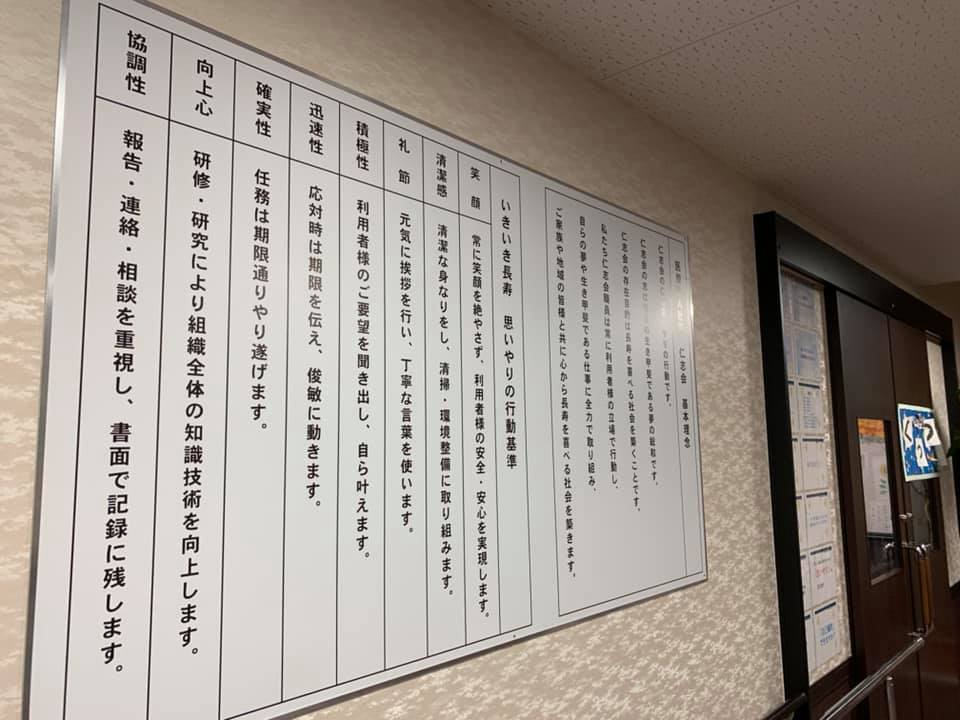 仁志会 基本理念
仁志会の行動です。
仁志会の志は生き甲斐である夢の総和です。
仁志会の存在目的は長寿を喜べる社会を築くことです。
私たち仁志会職員は常に利用者様の立場で行動し、
自らの夢や生き甲斐である仕事に全力で取り組み、
ご家族や地域の皆様と共に心から長寿を喜べる社会を築きます。
いきいき長寿 思いやりの行動基準
笑顔 常に笑顔を絶やさず、利用者様の安全・安心を実現します。
清潔感 清潔な身なりをし、清掃・環境整備に取り組みます。
礼節 元気に挨拶を行い、丁寧な言葉を使います。
積極性 利用者様のご要望を聞き出し、自ら叶えます。
迅速性 応対時は期限を伝え、俊敏に動きます。
確実性 任務は期限通りやり遂げます。
向上心 研修・研究により組織全体の知識技術を向上します。
協調性 報告・連絡・相談を重視し、書面で記録に残します。